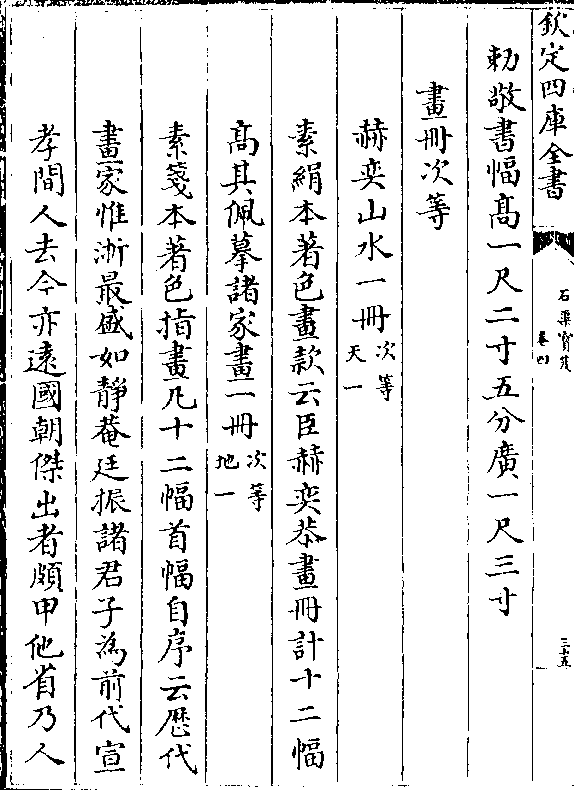 欽定四庫全書
石渠寳笈
卷四
三十五
勅敬書幅髙一尺二寸五分廣一尺三寸
畫冊次等
赫奕山水一冊次等天一
素絹本著色畫款云臣赫奕恭畫冊計十二幅
髙其佩摹諸家畫一冊次等地一
素箋本著色指畫凡十二幅首幅自序云歴代
畫家惟浙最盛如靜菴廷振諸君子為前代宣
孝間人去今亦遠國朝傑出者頗甲他省乃人